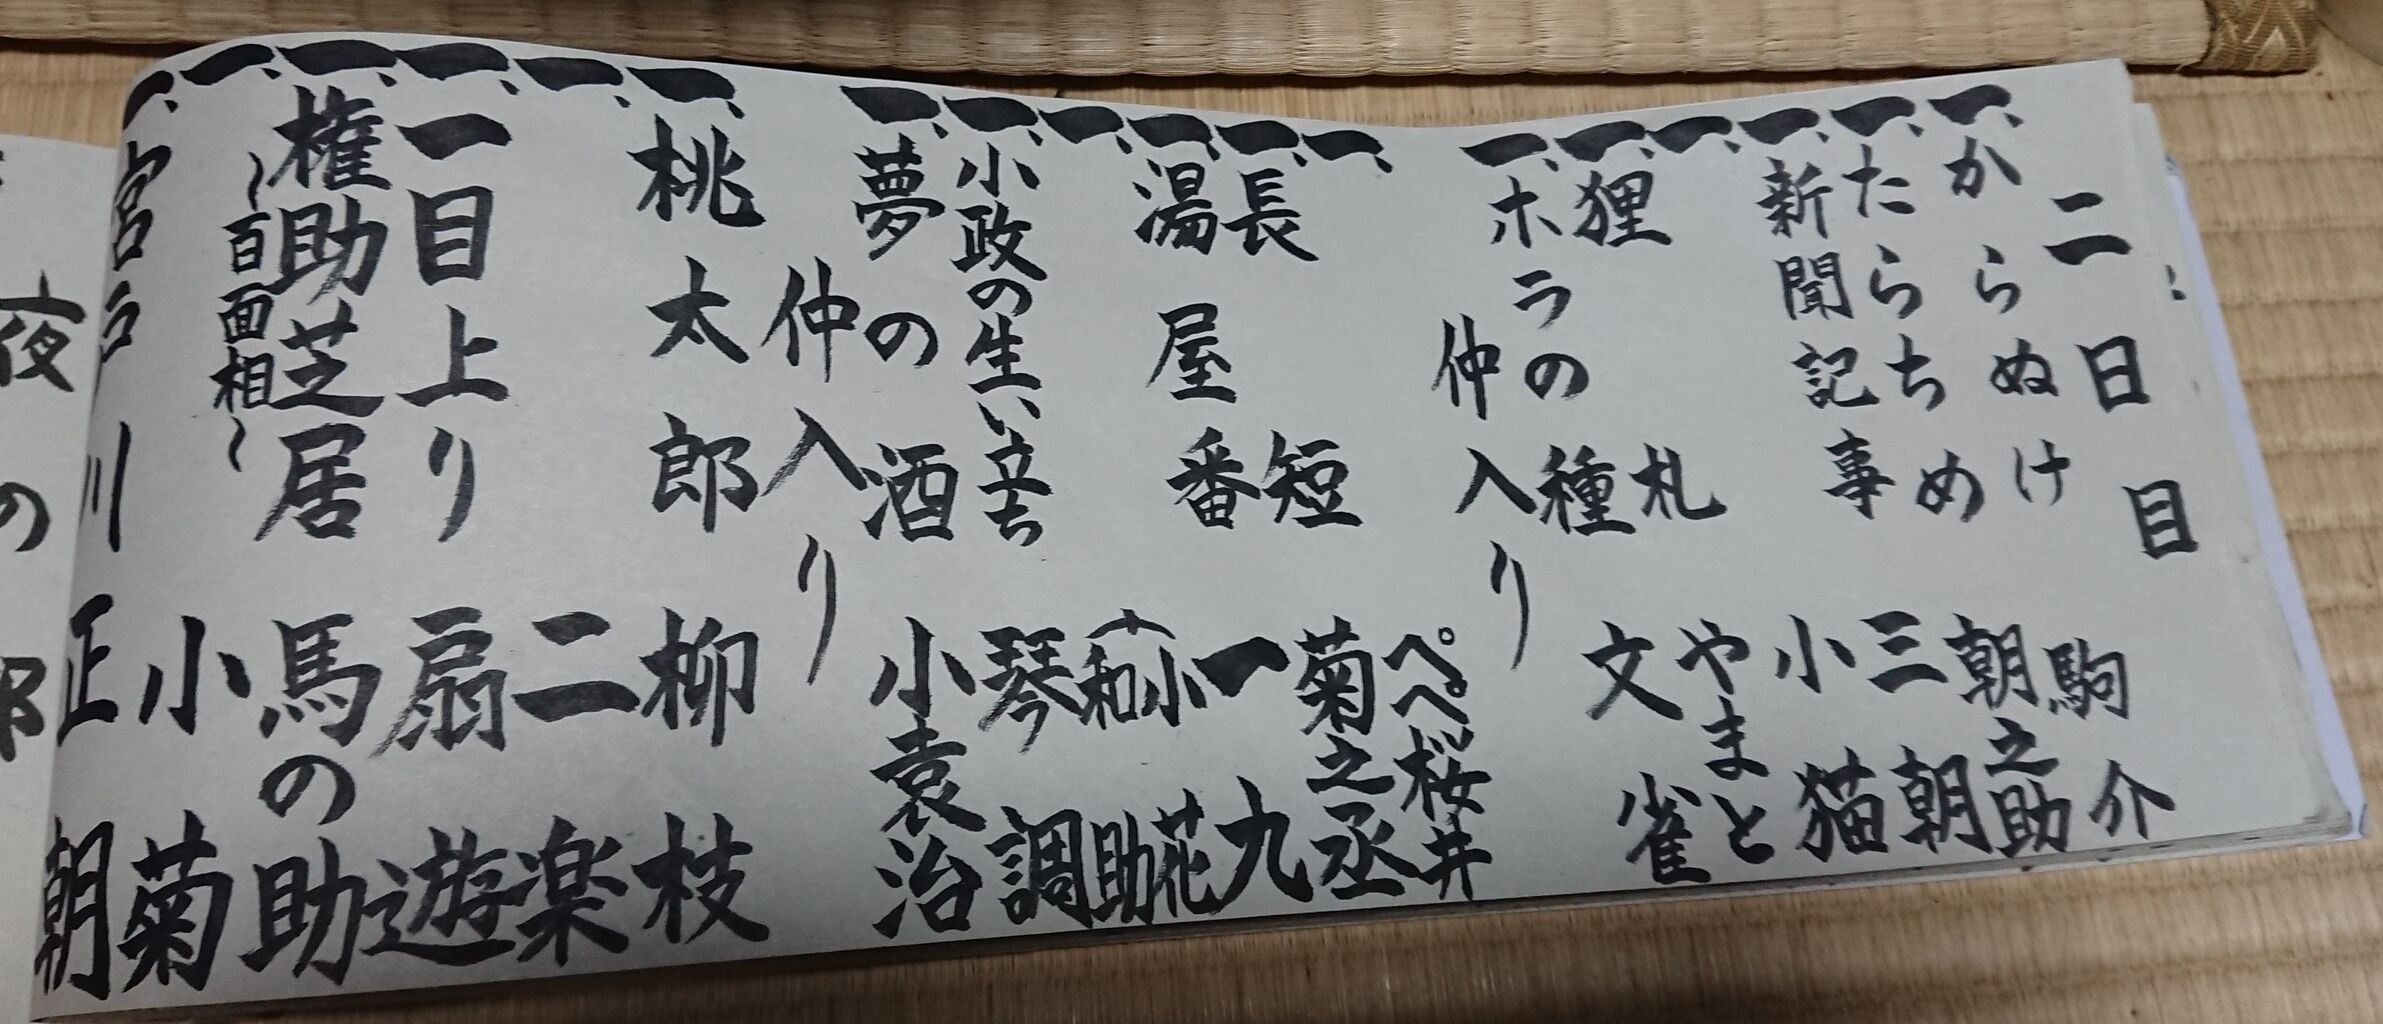 二日目
一、からぬけ 駒介
一、たらちめ 朝之助
一、新聞記事 三朝
一、 小猫
一、狸札 やまと
一、ホラの種 文雀
仲入り
一、 ペペ桜井
一、長短 菊之丞
一、湯屋番 一九
一、 小花 和助
一、小政の生い立ち 琴調
一、夢の酒 小袁治
仲入り
一、桃太郎 柳枝
一、 二楽
一、一目上り 扇遊
一、権助芝居 馬の助
〜百面相〜
一、 小菊
一、宮戸川 正朝
夜の